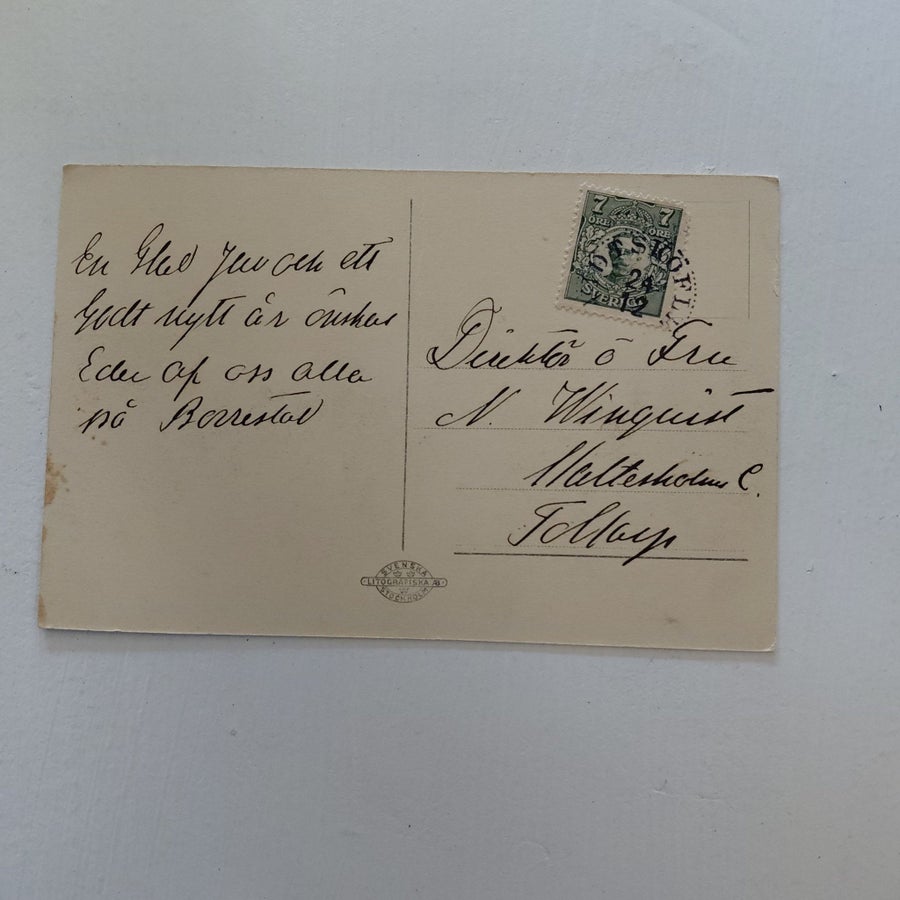 En Glad Jul och ett
Godt nytt år önskas
Eder af oss alla
på Borrestad
7 7
ÖRE ÖRE
SVERIGE
DJSKÖFLE
24
12
Direktör o Fru
N. Winquist
Maltesholms C.
Tollarp
SVENSKA
LITOGRAFISKA AB
STOCKHOLM